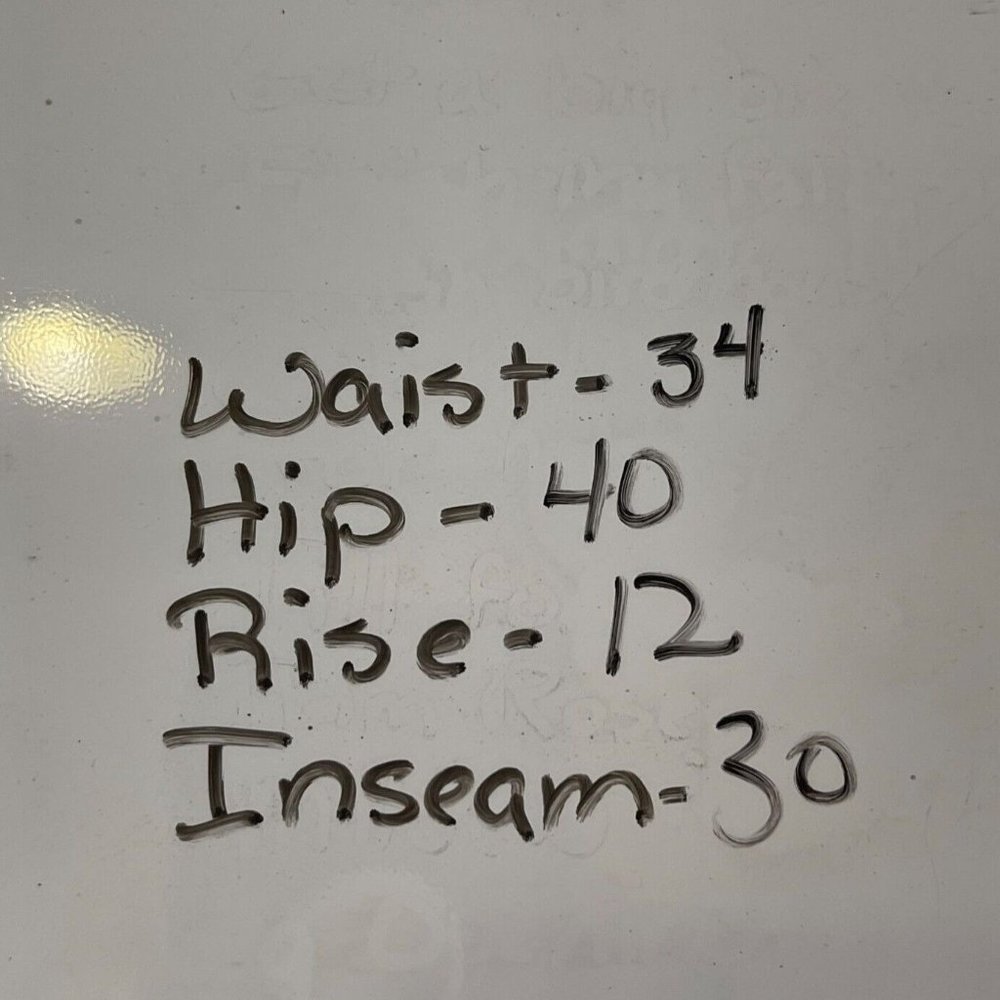 Waist - 34
Hip - 40
Rise - 12
Inseam - 30